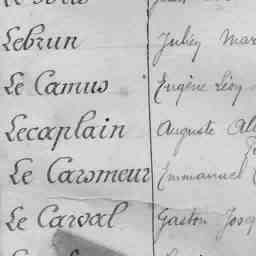 Lebrun Julien Mar
Le Camus Eugène Léon
Lecaplain Auguste Al
Le Carvmeur Emmanuel
Le Carval Gaston Josep